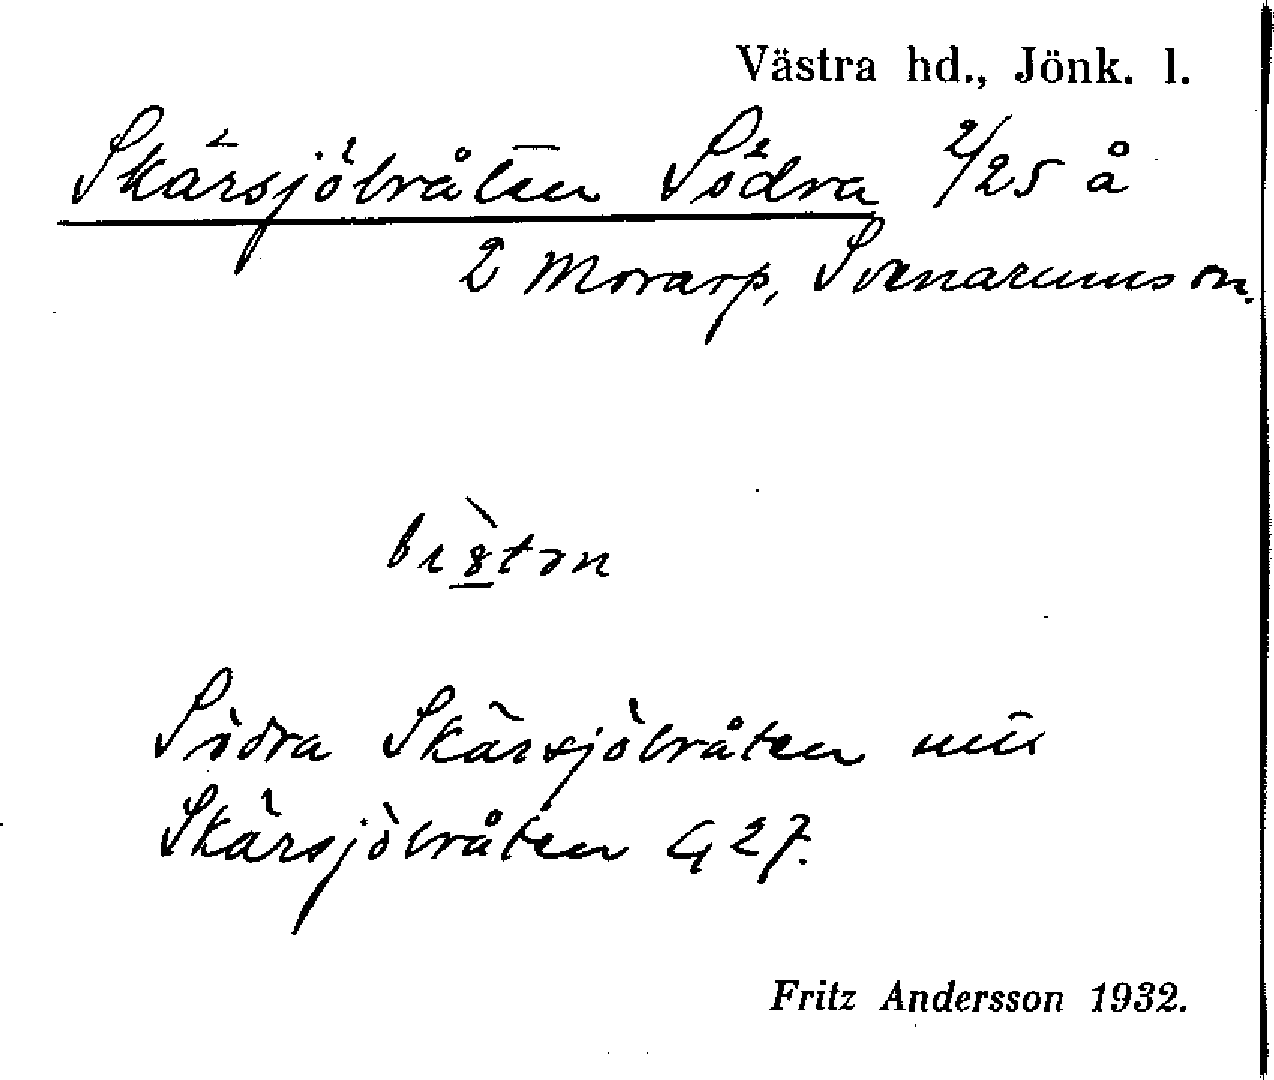 Västra hd., Jönk. l.
Skärsjöbråten Södra 2/25 å
2 Morarp, Svenarums sn.
Södra Skärsjöbråten
Skärsjöbråten G 27.
Fritz Andersson 1932.